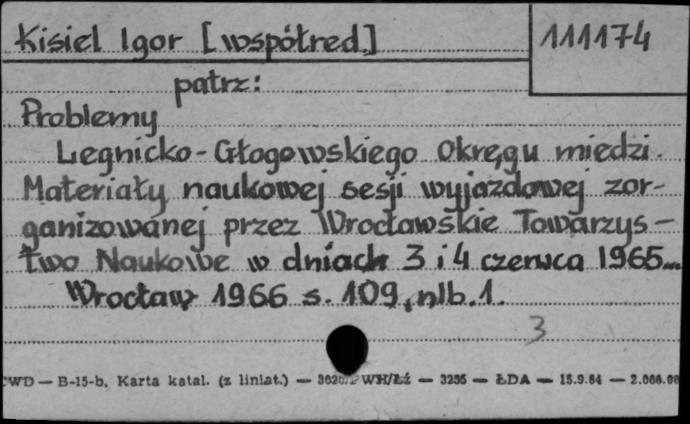 Kisiel Igor [współred.]
111174
patrz:
Problemy
Legnicko-Głogowskiego Okręgu miedzi.
Materiały naukowej sesji wyjazdowej zor-
ganizowanej przez Wrocławskie Towarzys-
two Naukowe w dniach 3 i 4 czerwca 1965...
Wrocław 1966 s. 109, nlb. 1.
3
CWD — B-15-b, Karta katal. (z liniat.) — WH/Łź — 3255 — ŁDA — 15.9.64 — 2.000.00